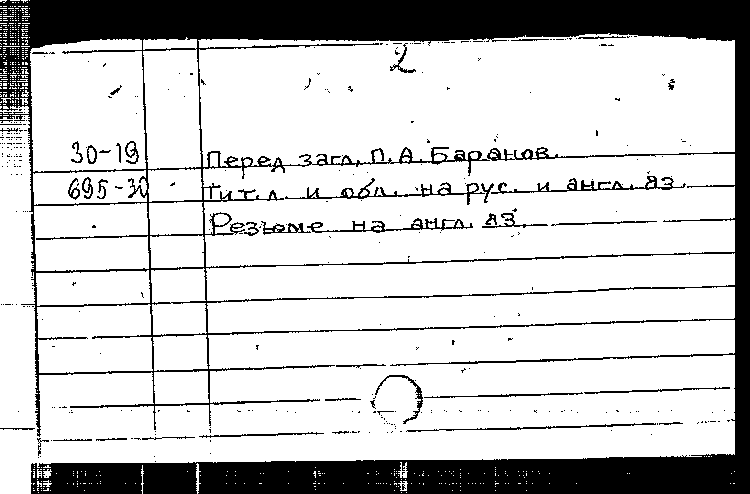 2
30-19 Перед загл. П.А. Баранов.
695-30 Тит.л. и обл. на рус. и англ. яз.
Резюме на англ. яз.